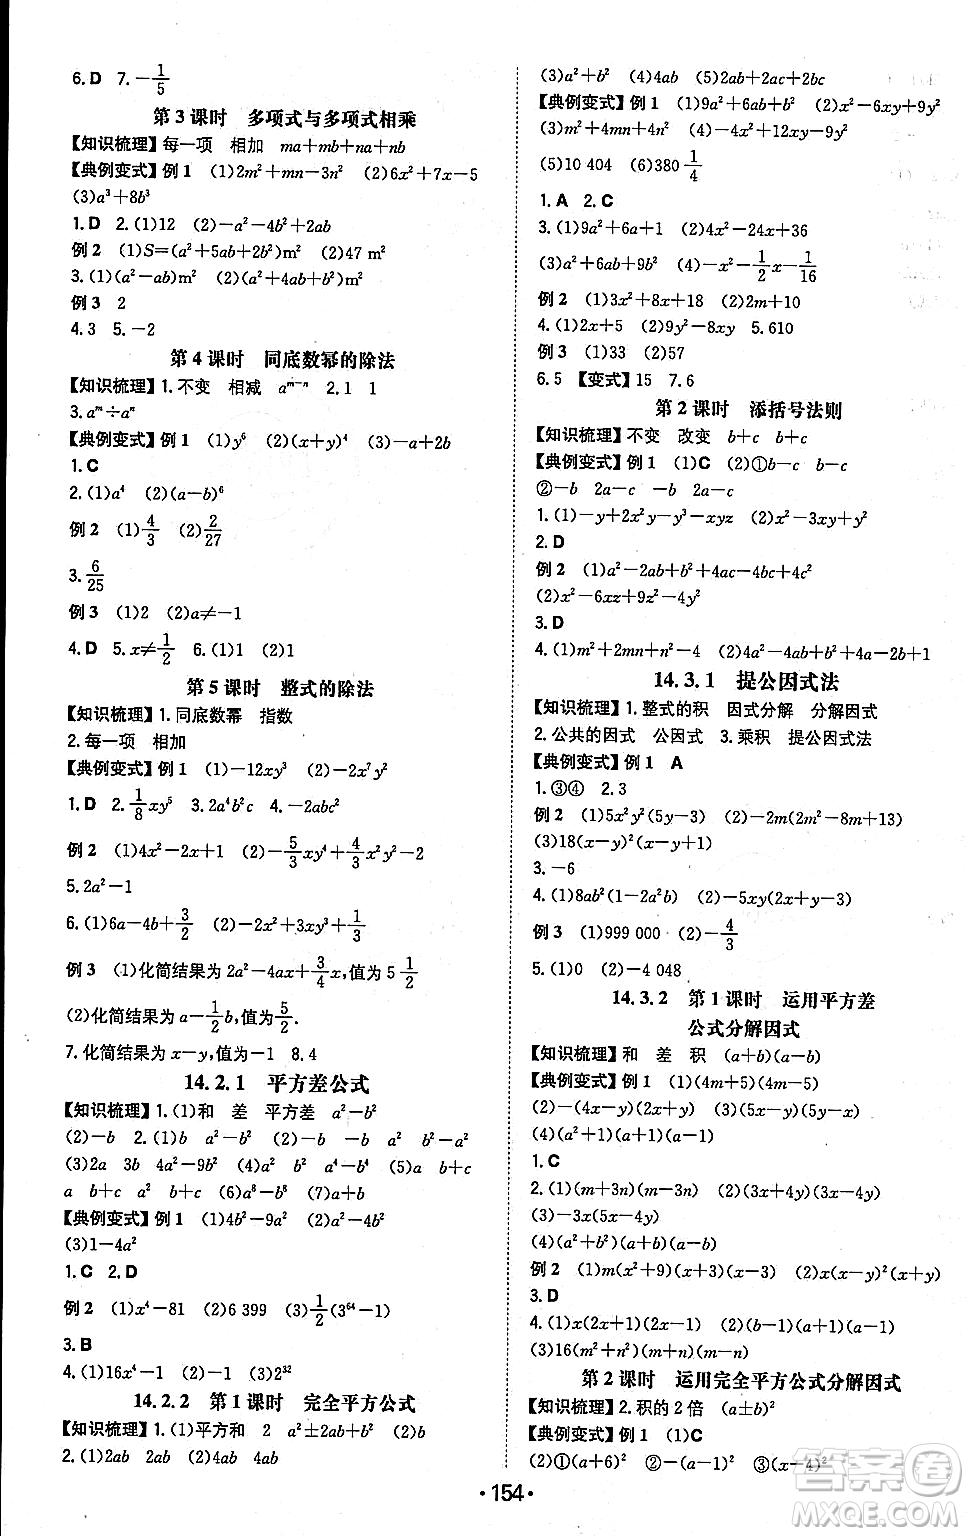 6. D 7. −1/5
第 3 课时 多项式与多项式相乘
【知识梳理】每一项 相加 ma+mb+na+nb
【典例变式】例 1 (1)2m²+mn−3n² (2)6x²+7x−5
(3)a³+8b³
1. D 2. (1)12 (2)−a²−4b²+2ab
例 2 (1)S=(a²+5ab+2b²)m² (2)47 m²
3. (1)(a²−ab)m² (2)(a²+4ab+3b²)m²
例 3 2
4. 3 5. −2
第 4 课时 同底数幂的除法
【知识梳理】1. 不变 相减 aᵐ⁻ⁿ 2. 1 1
3. aᵐ÷aⁿ
【典例变式】例 1 (1)y⁶ (2)(x+y)⁴ (3)−a+2b
1. C
2. (1)a⁴ (2)(a−b)⁶
例 2 (1)4/3 (2)2/27
3. 6/25
例 3 (1)2 (2)a≠−1
4. D 5. x≠1/2 6. (1)1 (2)1
第 5 课时 整式的除法
【知识梳理】1. 同底数幂 指数
2. 每一项 相加
【典例变式】例 1 (1)−12xy³ (2)−2x⁷y²
1. D 2. 1/8xy⁵ 3. 2a⁴b²c 4. −2abc²
例 2 (1)4x²−2x+1 (2)−5/3xy⁴+4/3x²y²−2
5. 2a²−1
6. (1)6a−4b+3/2 (2)−2x²+3x+1/3
例 3 (1)化简结果为 2a²−4ax+3/4x²,值为 65
(2)化简结果为 a−1/2b,值为5/2.
7. 化简结果为 x−y,值为−1 8. 4
14. 2. 1 平方差公式
【知识梳理】1. (1)和 差 平方差 a²−b²
(2)−b 2. (1)b a²−b² (2)−b −b a² b²−a²
(3)2a 3b 4a²−9b² (4)a² b² a⁴−b⁴ (5)a b+c
a b+c a² (b+c)² (6)a⁸−b⁸ (7)a b+c
【典例变式】例 1 (1)4b²−9a² (2)a²−4b²
(3)1−4a²
1. C 2. D
例 2 (1)x⁴−81 (2)6 399 (3)1/2(3⁶⁴−1)
3. B
4. (1)16x⁴−1 (2)1 (3)2³²
14. 2. 2 第 1 课时 完全平方公式
【知识梳理】1. (1)平方和 2 a²±2ab+b² (2)b
2. (1)2ab 2ab (2)4ab 4ab
(3)a²+b² (4)4ab (5)2ab+2ac+2bc
【典例变式】例 1 (1)9a²+6ab+b² (2)x²−6xy+9y²
(3)m²+4mn+4n² (4)4x²−12xy+9y²
(5)10 404 (6)380 1/4
1. A 2. C
3. (1)9a²+6a+1 (2)4x²−24x+36
(3)a²+6ab+9b² (4)−x²−1/2x−1/16
例 2 (1)3x²+8x+18 (2)2m+10
4. (1)2x+5 (2)9y²−8xy 5. 610
例 3 (1)33 (2)57
6. 5 【变式】15 7. 6
第 2 课时 添括号法则
【知识梳理】不变 改变 b+c b+c
【典例变式】例 1 (1)C (2)①b−c b−c
②−b 2a−c −b 2a−c
1. (1)−y+2x²y−y³−xyz (2)x²−3xy+y²
2. D
例 2 (1)a²−2ab+b²+4ac−4bc+4c²
(2)x²−6xz+9z²−4y²
3. D
4. (1)m²+2mn+n²−4 (2)4a²−4ab+b²+4a−2b+1
14. 3. 1 提公因式法
【知识梳理】1. 整式的积 因式分解 分解因式
2. 公共的因式 公因式 3. 乘积 提公因式法
【典例变式】例 1 A
1. ③④ 2. 3
例 2 (1)5x²y²(5y−3) (2)−2m(2m²−8m+13)
(3)18(x−y)²(x−y+1)
3. −6
4. (1)8ab²(1−2a²b) (2)−5xy(2x−y+1)
例 3 (1)999 000 (2)−4/3
5. (1)0 (2)−4 048
14. 3. 2 第 1 课时 运用平方差
公式分解因式
【知识梳理】和 差 积 (a+b)(a−b)
【典例变式】例 1 (1)(4m+5)(4m−5)
(2)−(4x−y)(2x−y) (3)5(5y+x)(5y−x)
(4)(a²+1)(a+1)(a−1)
1. C
2. (1)(m+3n)(m−3n) (2)(3x+4y)(3x−4y)
(3)−3x(5x−2y)
(4)(a²+b²)(a+b)(a−b)
例 2 (1)m(x²+9)(x+3)(x−3) (2)x(x−y)²(x+y)
3. D
4. (1)x(2x+1)(2x−1) (2)(b−1)(a+1)(a−1)
(3)16(m²+n²)(m+n)(m−n)
第 2 课时 运用完全平方公式分解因式
【知识梳理】2. 积的 2 倍 (a±b)²
【典例变式】例 1 (1)C
(2)①(2x+5)² ②−(a−1)² ③(x−4)²
·154·
答案圈
MXQE.COM